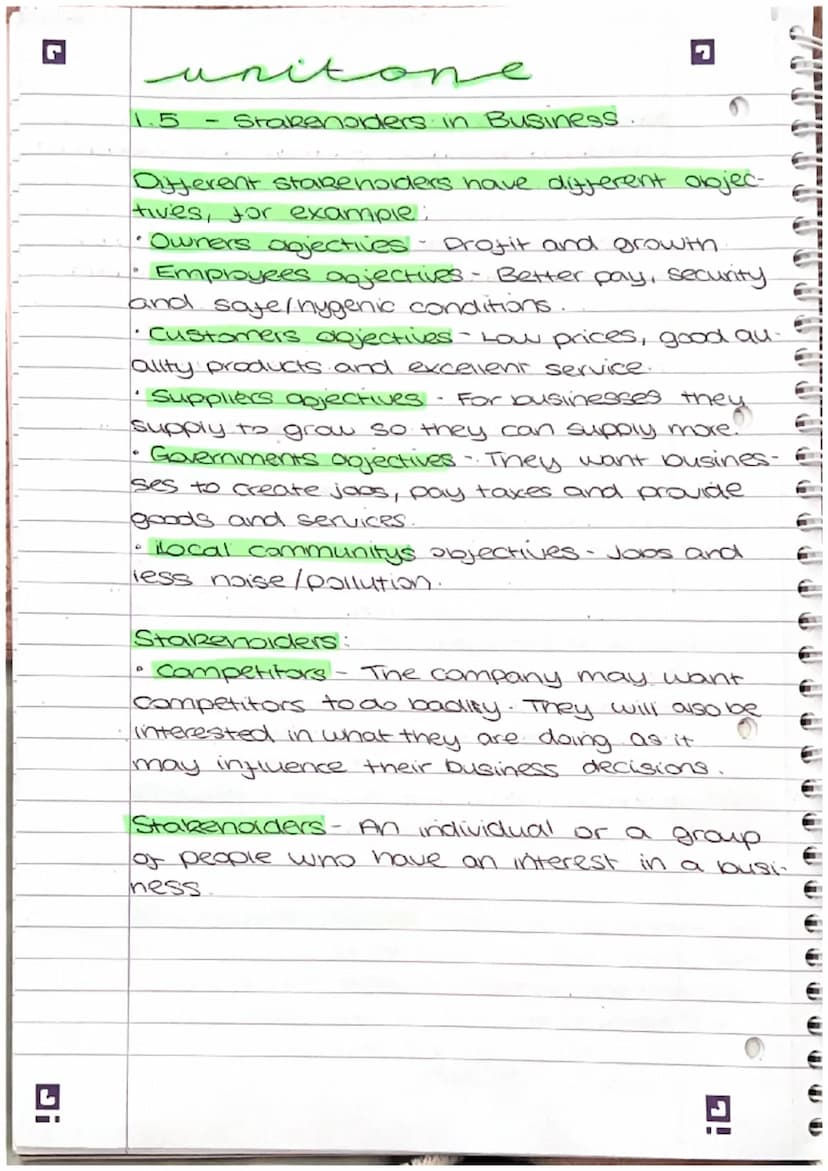 unit one
1.5 - Stakeholders in Business.
Different stakeholders have different objec-
tives, for example:
• Owners objectives - Profit and growth
• Employees objectives - Better pay, security
and safe/hygenic conditions.
• Customers objectives - Low prices, good qu-
ality products and excellent service.
• Suppliers objectives - For businesses they
supply to grow so they can supply more.
• Governments objectives - They want busines-
ses to create jobs, pay taxes and provide
goods and services.
• Local communitys objectives - Jobs and
less noise/pollution.
Stakeholders:
• Competitors - The company may want
competitors to do badly. They will also be
interested in what they are doing as it
may influence their business decisions.
Stakeholders - An individual or a group
of people who have an interest in a busi-
ness.